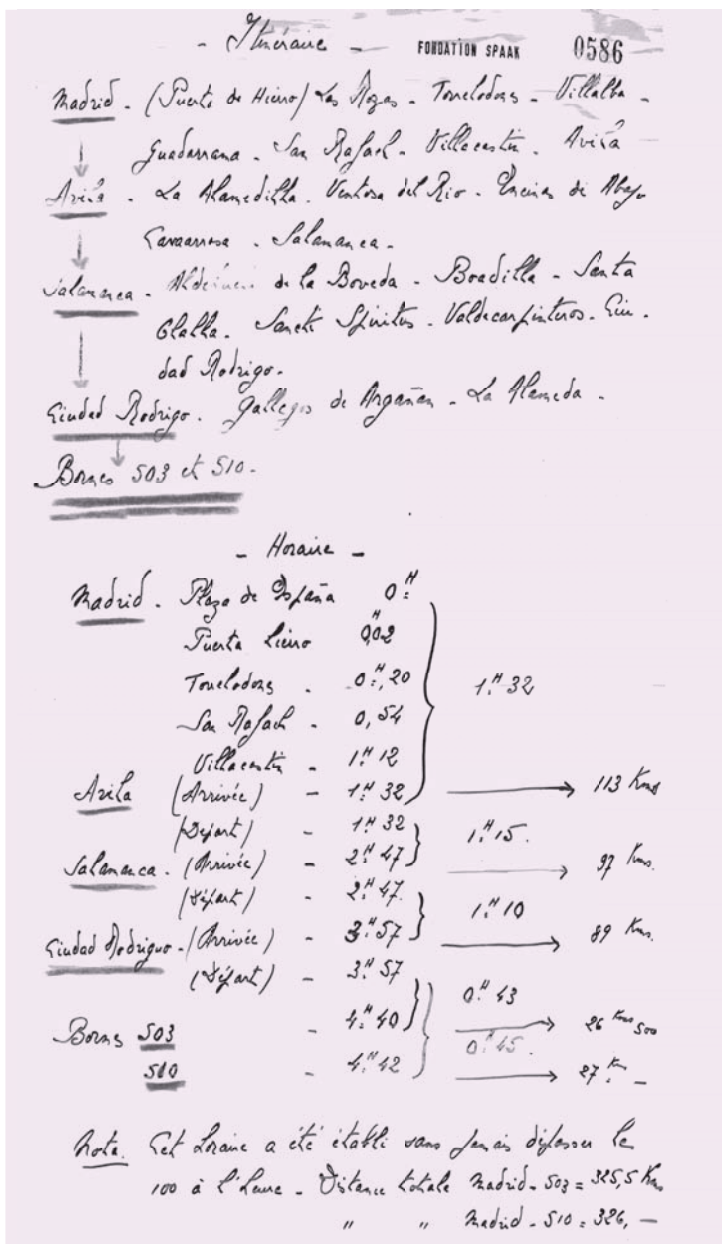 - Itinéraire - FONDATION SPAAK 0586
Madrid - (Puerta de Hierro) Las Rozas - Torrelodones - Villalba -
Guadarrama - San Rafael - Villacastin - Avila
Avila - La Alamedilla - Ventosa del Rio - Encinas de Abajo
- Salamanca -
Salamanca - de la Boveda - Boadilla - Santa
Olalla - Sancti Spiritus - Valdecarpinteros - Ciu-
dad Rodrigo.
Ciudad Rodrigo - Gallegos de Argañan - La Alameda -
Bornes 503 et 510 -
- Horaire -
Madrid - Plaza de España 0H
Puerta hierro 0H02
Torrelodones - 0H,20
San Rafael - 0,54
Villacastin - 1H12
1H32
Avila (Arrivée) - 1H32 113 Kms
(Départ) - 1H32
1H15.
Salamanca - (Arrivée) - 2H47 97 Kms.
(Départ) - 2H47.
1H10
Ciudad Rodriguo - (Arrivée) - 3H57 89 Kms.
(Départ) - 3H57
0H43
Bornes 503 - 4H40 26 Kms 500
0H45.
510 - 4H42 27 Kms -
Nota. Cet horaire a été établi sans jamais dépasser le
100 à l'heure - Distance totale Madrid - 503 = 325,5 Kms
" " Madrid - 510 = 326, -